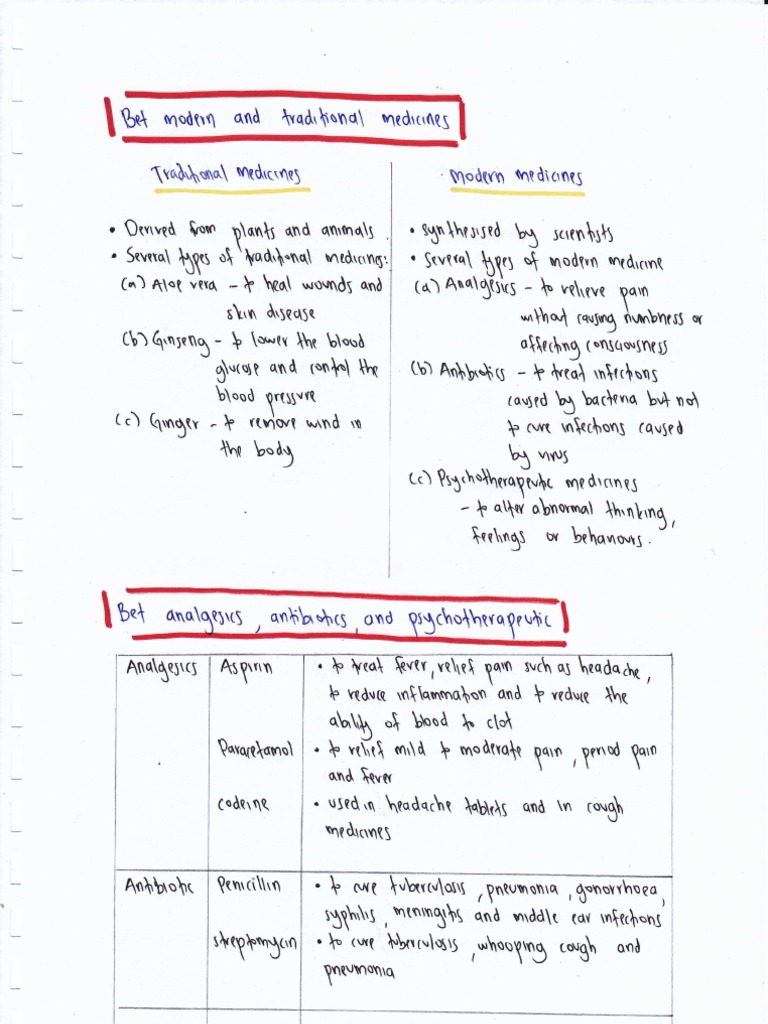 Bet modern and traditional medicines
Traditional Medicines
• Derived from plants and animals
• Several types of traditional medicines:
(a) Aloe vera - to heal wounds and
skin disease
(b) Ginseng - to lower the blood
glucose and control the
blood pressure
(c) Ginger - to remove wind in
the body
Modern medicines
• synthesised by scientists
• Several types of modern medicine
(a) Analgesics - to relieve pain
without causing numbness or
affecting consciousness
(b) Antibiotics - to treat infections
caused by bacteria but not
to cure infections caused
by virus
(c) Psychotherapeutic medicines
- to alter abnormal thinking,
feelings or behaviours.
Bet analgesics, antibiotics, and psychotherapeutic
Analgesics Aspirin • to treat fever, relief pain such as headache,
to reduce inflammation and to reduce the
ability of blood to clot
Paracetamol • to relief mild to moderate pain, period pain
and fever
codeine • used in headache tablets and in cough
medicines
Antibiotic Penicillin • to cure tuberculosis, pneumonia, gonorrhoea,
syphilis, meningitis and middle ear infections
streptomycin • to cure tuberculosis, whooping cough and
pneumonia